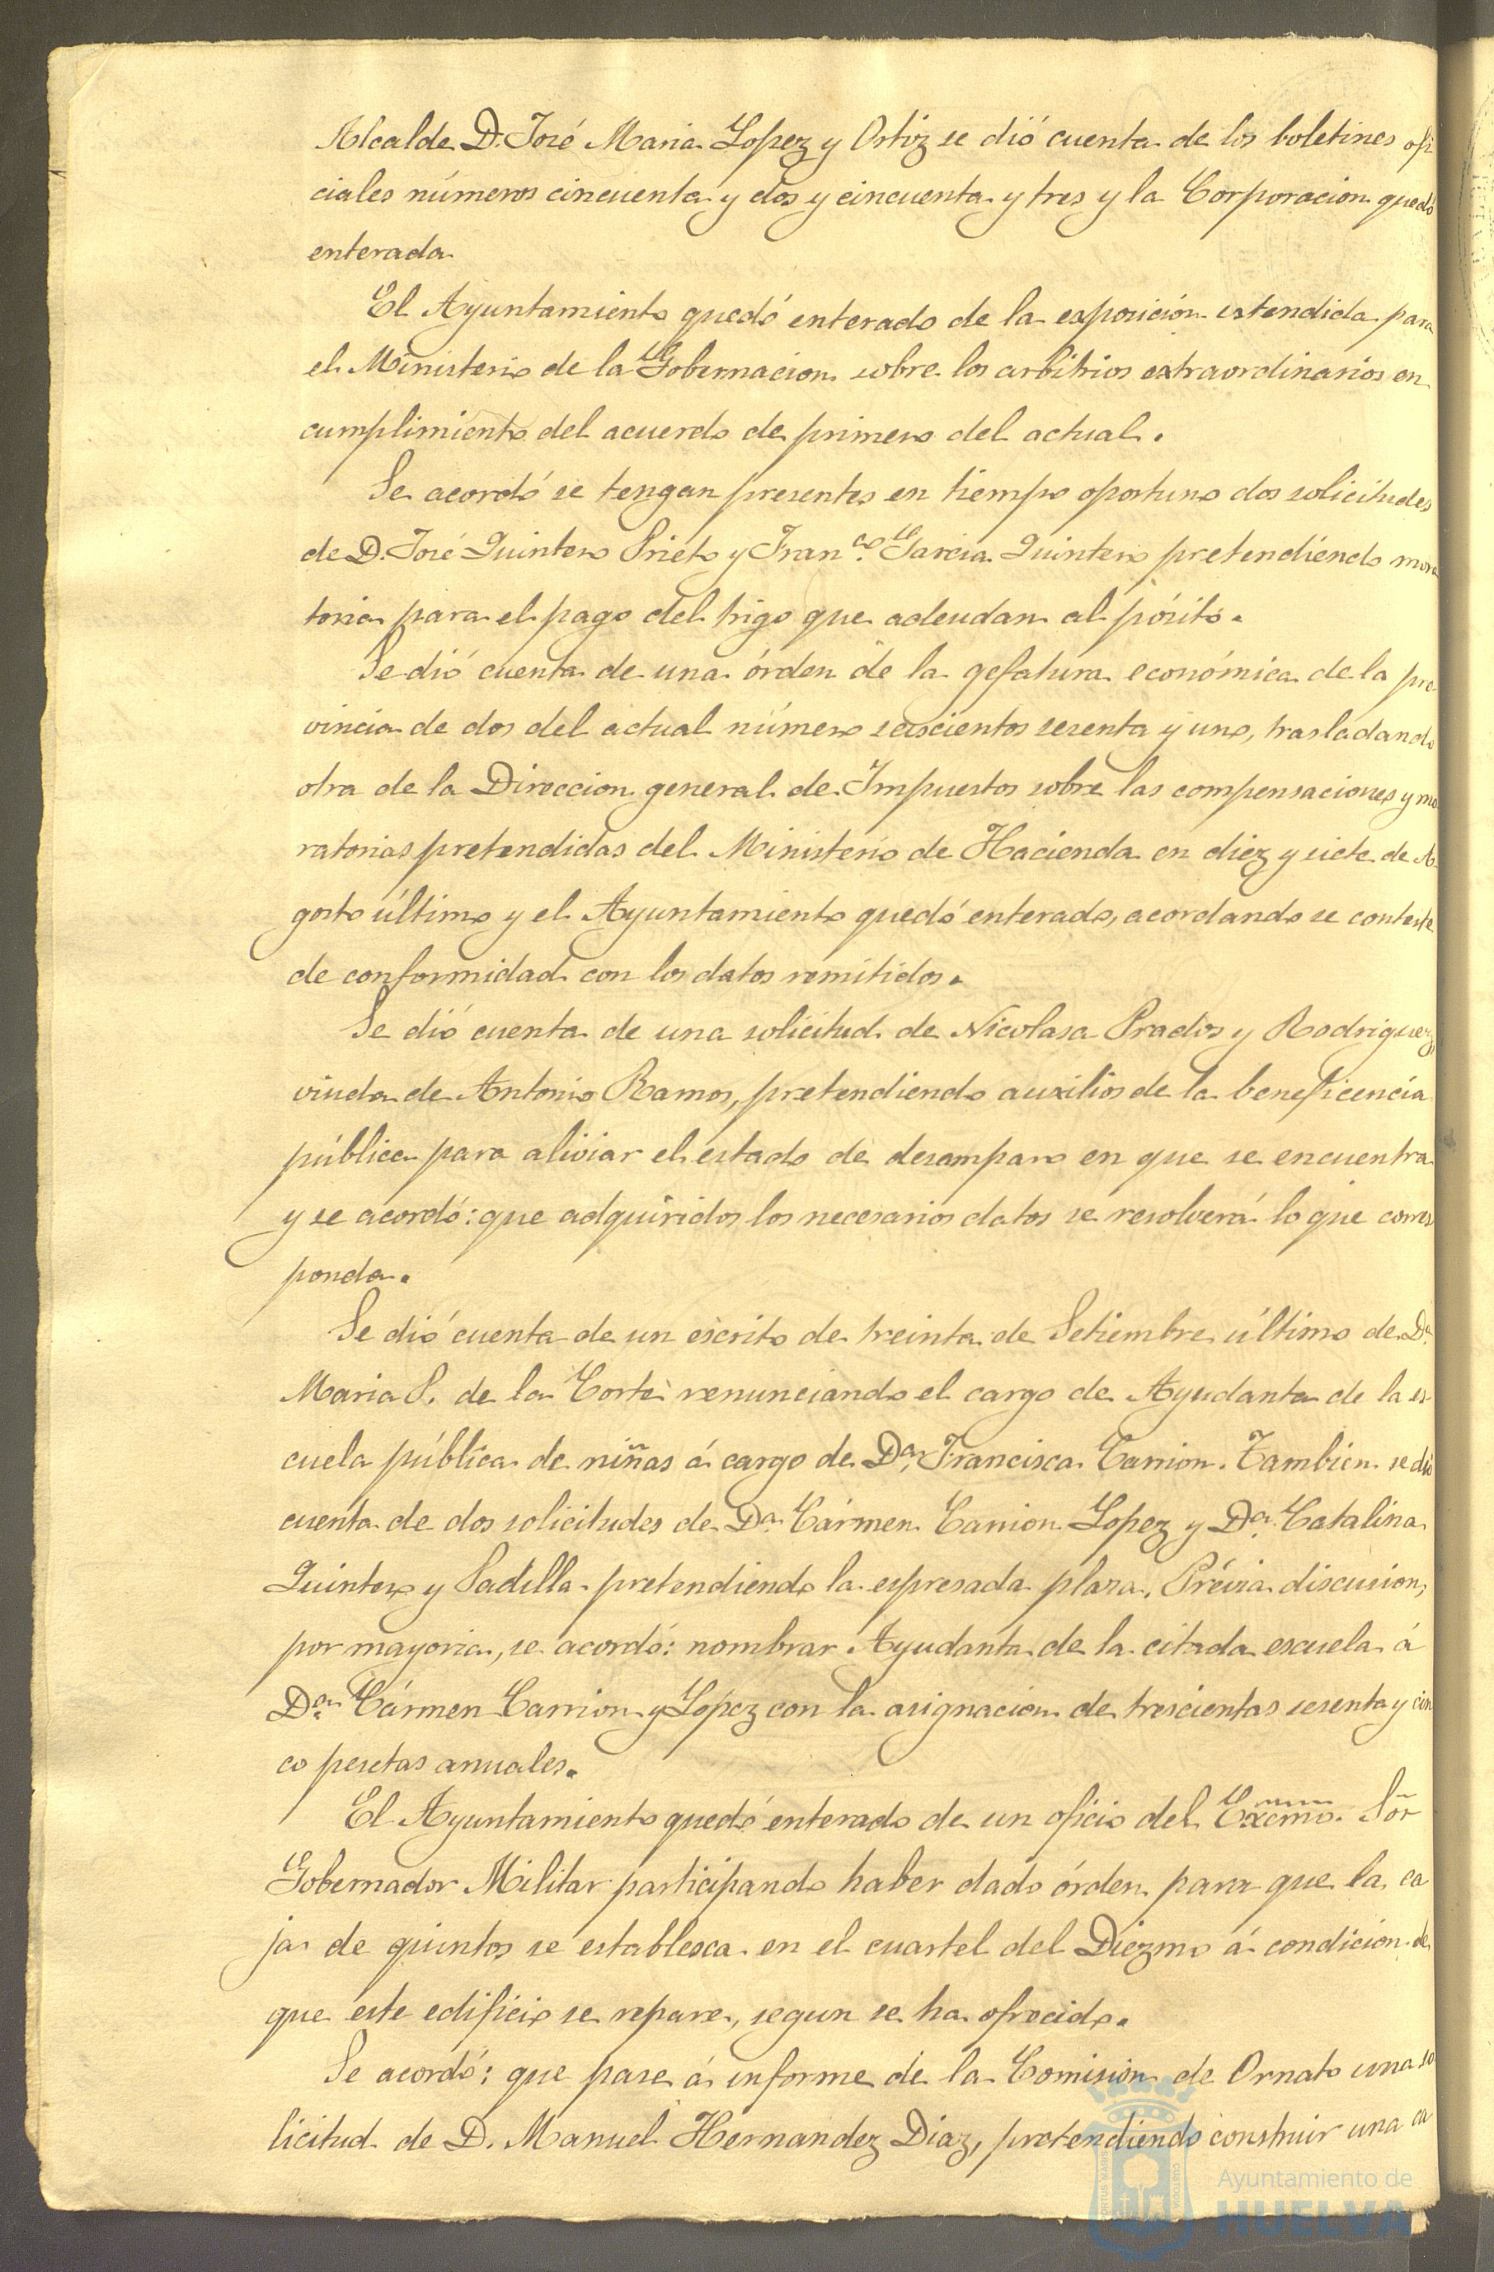 Alcalde D. José Maria Lopez y Ortiz se dió cuenta de los boletines ofi
ciales números cincuenta y dos y cincuenta y tres y la Corporacion quedó
enterada
El Ayuntamiento quedó enterado de la exposición estendida para
el Ministerio de la Gobernacion sobre los arbitrios extraordinarios en
cumplimiento del acuerdo de primero del actual.
Se acordó se tengan presentes en tiempo oportuno dos solicitudes
de D. José Quintero Prieto y Franco. Garcia Quintero pretendiendo mora
toria para el pago del trigo que adeudan al pósito.
Se dió cuenta de una órden de la gefatura económica de la pro
vincia de dos del actual número seiscientos sesenta y uno, trasladando
otra de la Direccion general de Impuestos sobre las compensaciones y mo
ratorias pretendidas del Ministerio de Hacienda en diez y siete de A
gosto último y el Ayuntamiento quedó enterado, acordando se conteste
de conformidad con los datos remitidos.
Se dió cuenta de una solicitud de Nicolasa Prados y Rodriguez,
viuda de Antonio Ramos, pretendiendo auxilios de la beneficencia
pública para aliviar el estado de desamparo en que se encuentra
y se acordó: que adquiridos los necesarios datos se resolverá lo que corres
ponda.
Se dió cuenta de un escrito de treinta de Setiembre último de Da.
Maria S. de la Corte renunciando el cargo de Ayudanta de la es
cuela pública de niñas á cargo de Da. Francisca Carrion. Tambien se dió
cuenta de dos solicitudes de Da. Cármen Carrion Lopez y Da. Catalina
Quintero y Padilla pretendiendo la espresada plaza. Prévia discusion,
por mayoria, se acordó: nombrar Ayudanta de la citada escuela á
Da. Cármen Carrion y Lopez con la asignacion de trescientas sesenta y cin
co pesetas anuales.
El Ayuntamiento quedó enterado de un oficio del Excmo. Sõr
Gobernador Militar participando haber dado órden para que la ca
ja de quintos se establesca en el cuartel del Diezmo á condicion de
que este edificio se repare, segun se ha ofrecido.
Se acordó: que pase á informe de la Comision de Ornato una so
licitud de D. Manuel Hernandez Diaz, pretendiendo construir una ca
Ayuntamiento de
HUELVA